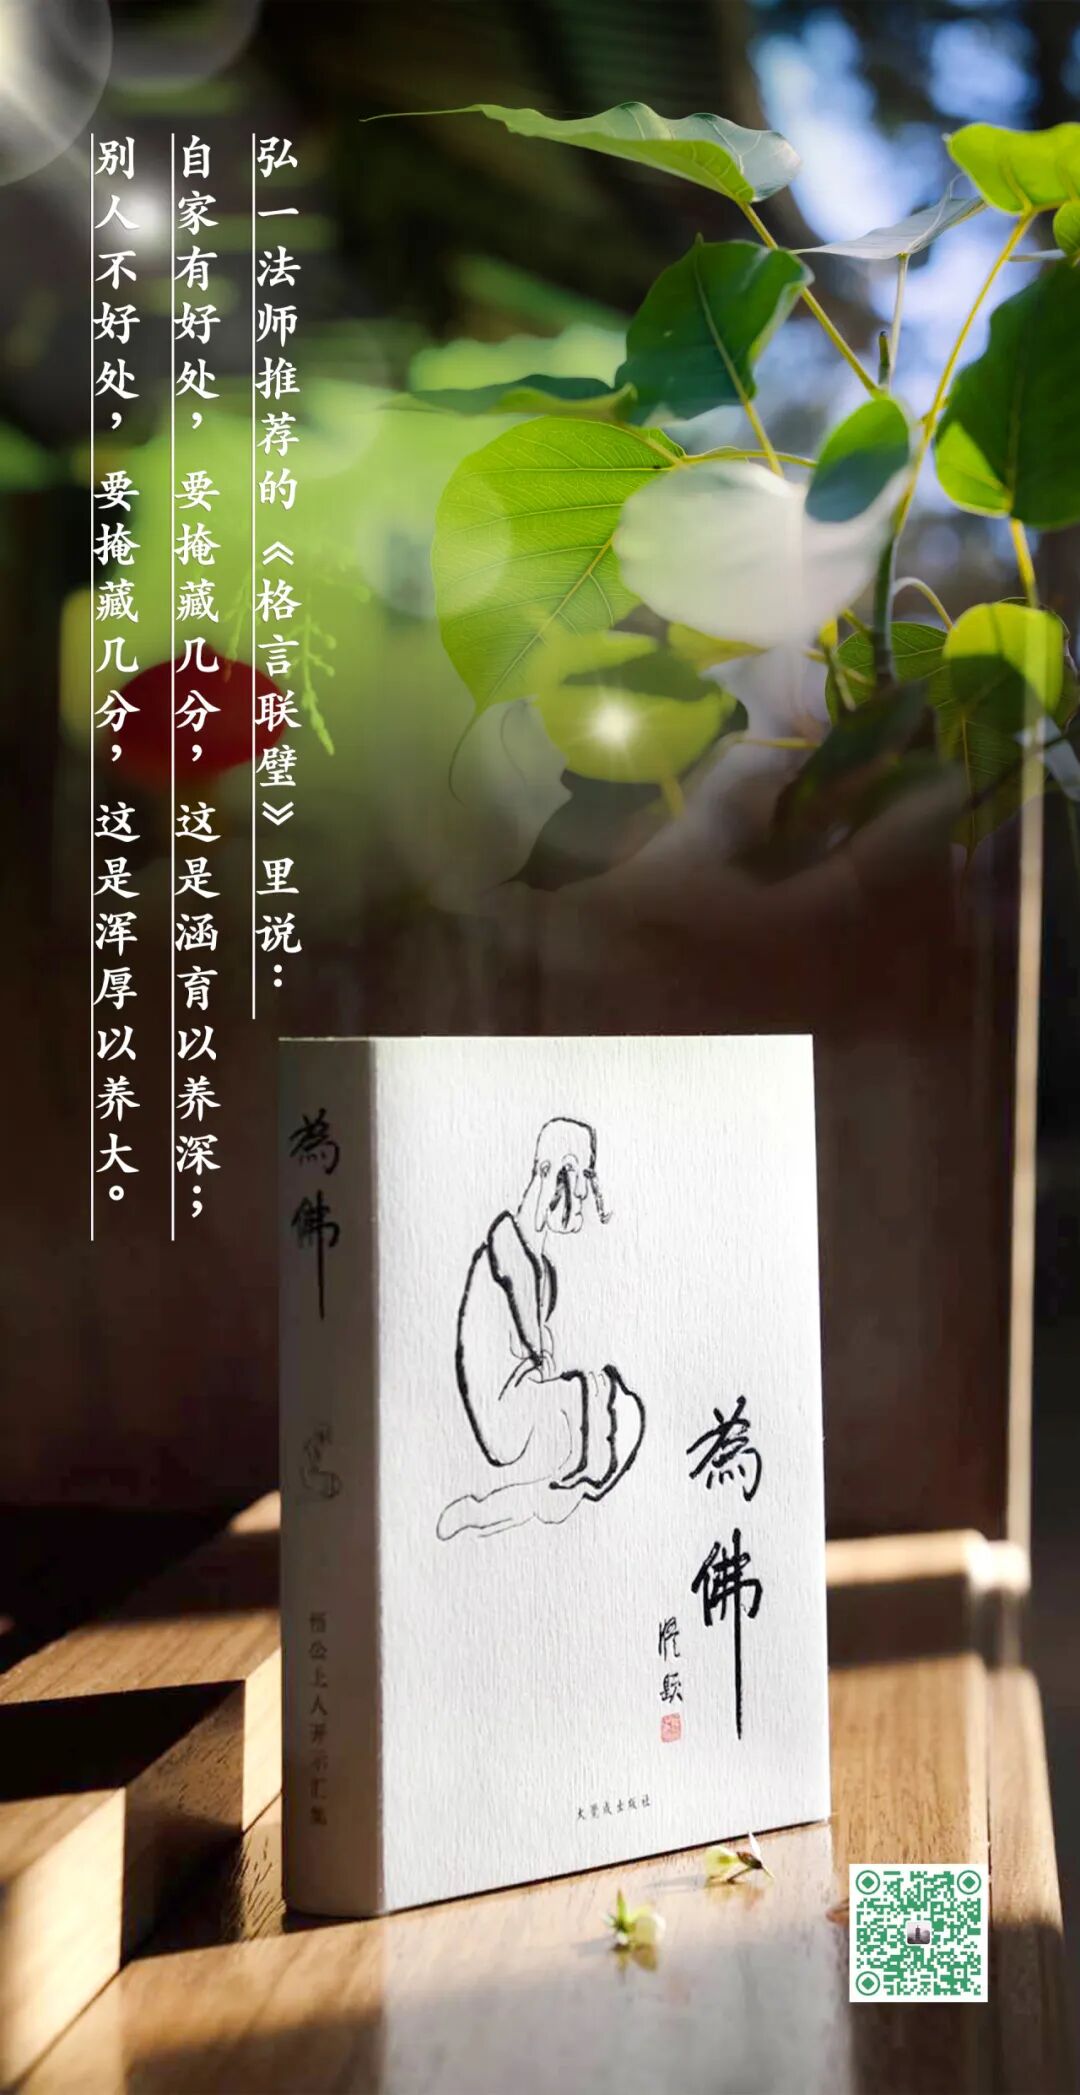 弘一法师推荐的《格言联璧》里说：
自家有好处，要掩藏几分，这是涵育以养深；
别人不好处，要掩藏几分，这是浑厚以养大。
為佛
悟公上人开示汇集
為佛
大觉成出版社